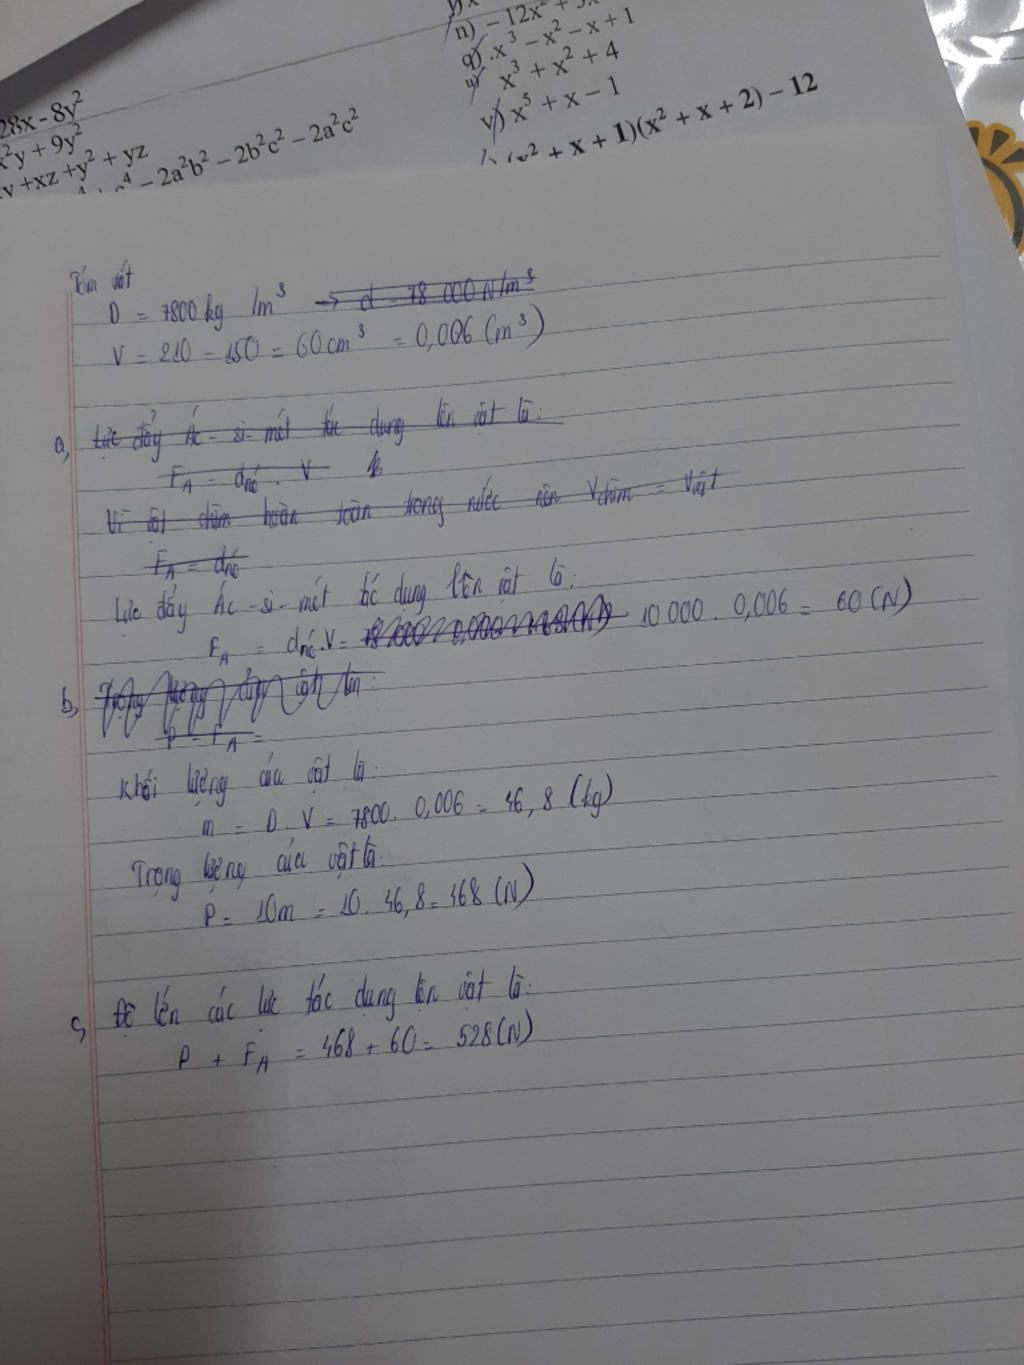 n) – 12x² +
q) x³ – x² – x + 1
u) x³ + x² + 4
v) x⁵ + x – 1
+ x + 1)(x² + x + 2) – 12
28x - 8y²
x²y + 9y²
+xz +y² + yz
– 2a²b² – 2b²c² – 2a²c²
Tóm tắt
D = 7800 kg /m³ → d = 78 000 N/m³
V = 210 – 150 = 60 cm³ = 0,006 (m³)
a, Lực đẩy Ác - si - mét tác dụng lên vật là:
F_A = d_nc . V
Vì vật chìm hoàn toàn trong nước nên V_chìm = V_vật
F_A = d_nc
Lực đẩy Ác - si - mét tác dụng lên vật là:
F_A = d_nc . V = 10 000 . 0,006 = 60 (N)
b, Trọng lượng của vật
P = F_A =
Khối lượng của vật là:
m = D . V = 7800 . 0,006 = 46,8 (kg)
Trọng lượng của vật là:
P = 10m = 10 . 46,8 = 468 (N)
c, Độ lớn các lực tác dụng lên vật là:
P + F_A = 468 + 60 = 528 (N)